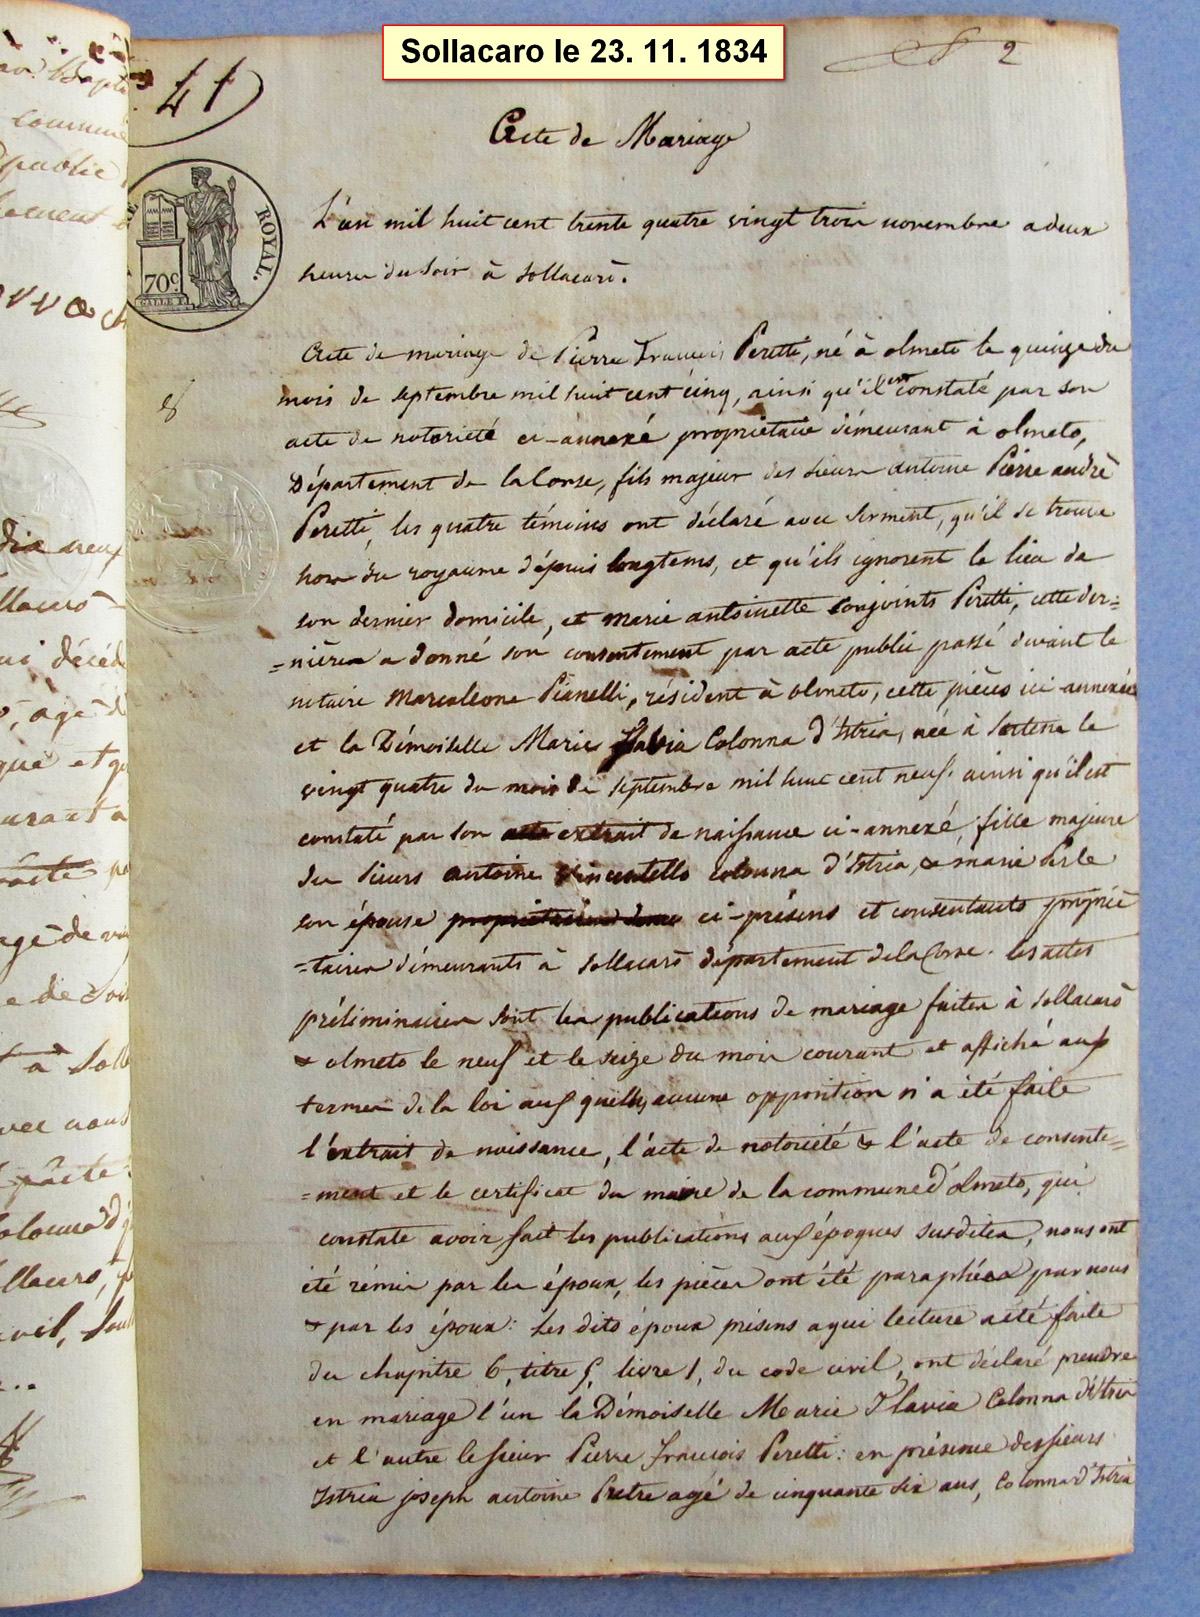 Sollacaro le 23. 11. 1834
41
2
Acte de Mariage
ROYAL.
70c
L'an mil huit cent trente quatre vingt trois novembre a deux
heures du soir à Sollacarò.
Acte de mariage de Pierre François Peretti, né à olmeto le quinze du
mois de septembre mil huit cent cinq, ainsi qu'il est constaté par son
acte de notorieté ci-annexé propriétaire démeurant à olmeto,
Département de la Corse, fils majeur des sieurs antoine Pierre andrè
Peretti, les quatre témoins ont déclaré avec serment, qu'il se trouve
hors du royaume dépuis longtems, et qu'ils ignorent le lieu de
son dernier domicile, et marie antoinette conjoints Peretti, cette der=
=nière a donné son consentement par acte public passé devant le
notaire Marcaleone Pianelli, résident à olmeto, cette pièces ici annexée
et la Démoiselle Marie Flavia Colonna d'Istria, née à Sartene le
vingt quatre du mois de septembre mil huit cent neuf ainsi qu'il est
constaté par son extrait de naissance ci-annexé, fille majeure
du sieurs antoine Vincentello colonna d'Istria, & marie Perle
son épouse ci-présens et consentants proprié
=taires démeurants à Sollacarò département de la Corse. les actes
préliminaires sont les publications de mariage faites à Sollacarò
& olmeto le neuf et le seize du mois courant et affiché aux
termes de la loi aux quelles aucune opposition n'a été faite
l'extrait de naissance, l'acte de notoriété & l'acte de consente=
=ment et le certificat du maire de la commune d'olmeto, qui
constate avoir fait les publications aux époques susdites, nous ont
été rémis par les époux, les pièces ont été paraphées par nous
& par les époux: Les dits époux présens a qui lecture a été faite
du chapitre 6, titre 5, livre 1, du code civil, ont déclaré prendre
en mariage l'un la Démoiselle Marie Flavia Colonna d'Istria
et l'autre le sieur Pierre françois Peretti: en présence des sieurs
Istria joseph antoine Pretre agé de cinquante six ans, Colonna d'Istria